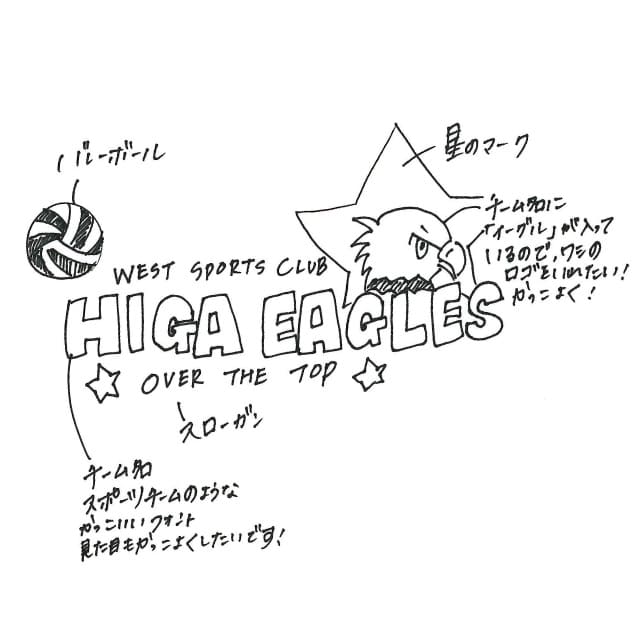 バレーボール
星のマーク
チーム名に
「イーグル」が入って
いるので、ワシの
ロゴをいれたい!
かっこよく!
WEST SPORTS CLUB
HIGA EAGLES
☆ OVER THE TOP ☆
スローガン
チーム名
スポーツチームのような
かっこいいフォント
見た目もかっこよくしたいです!